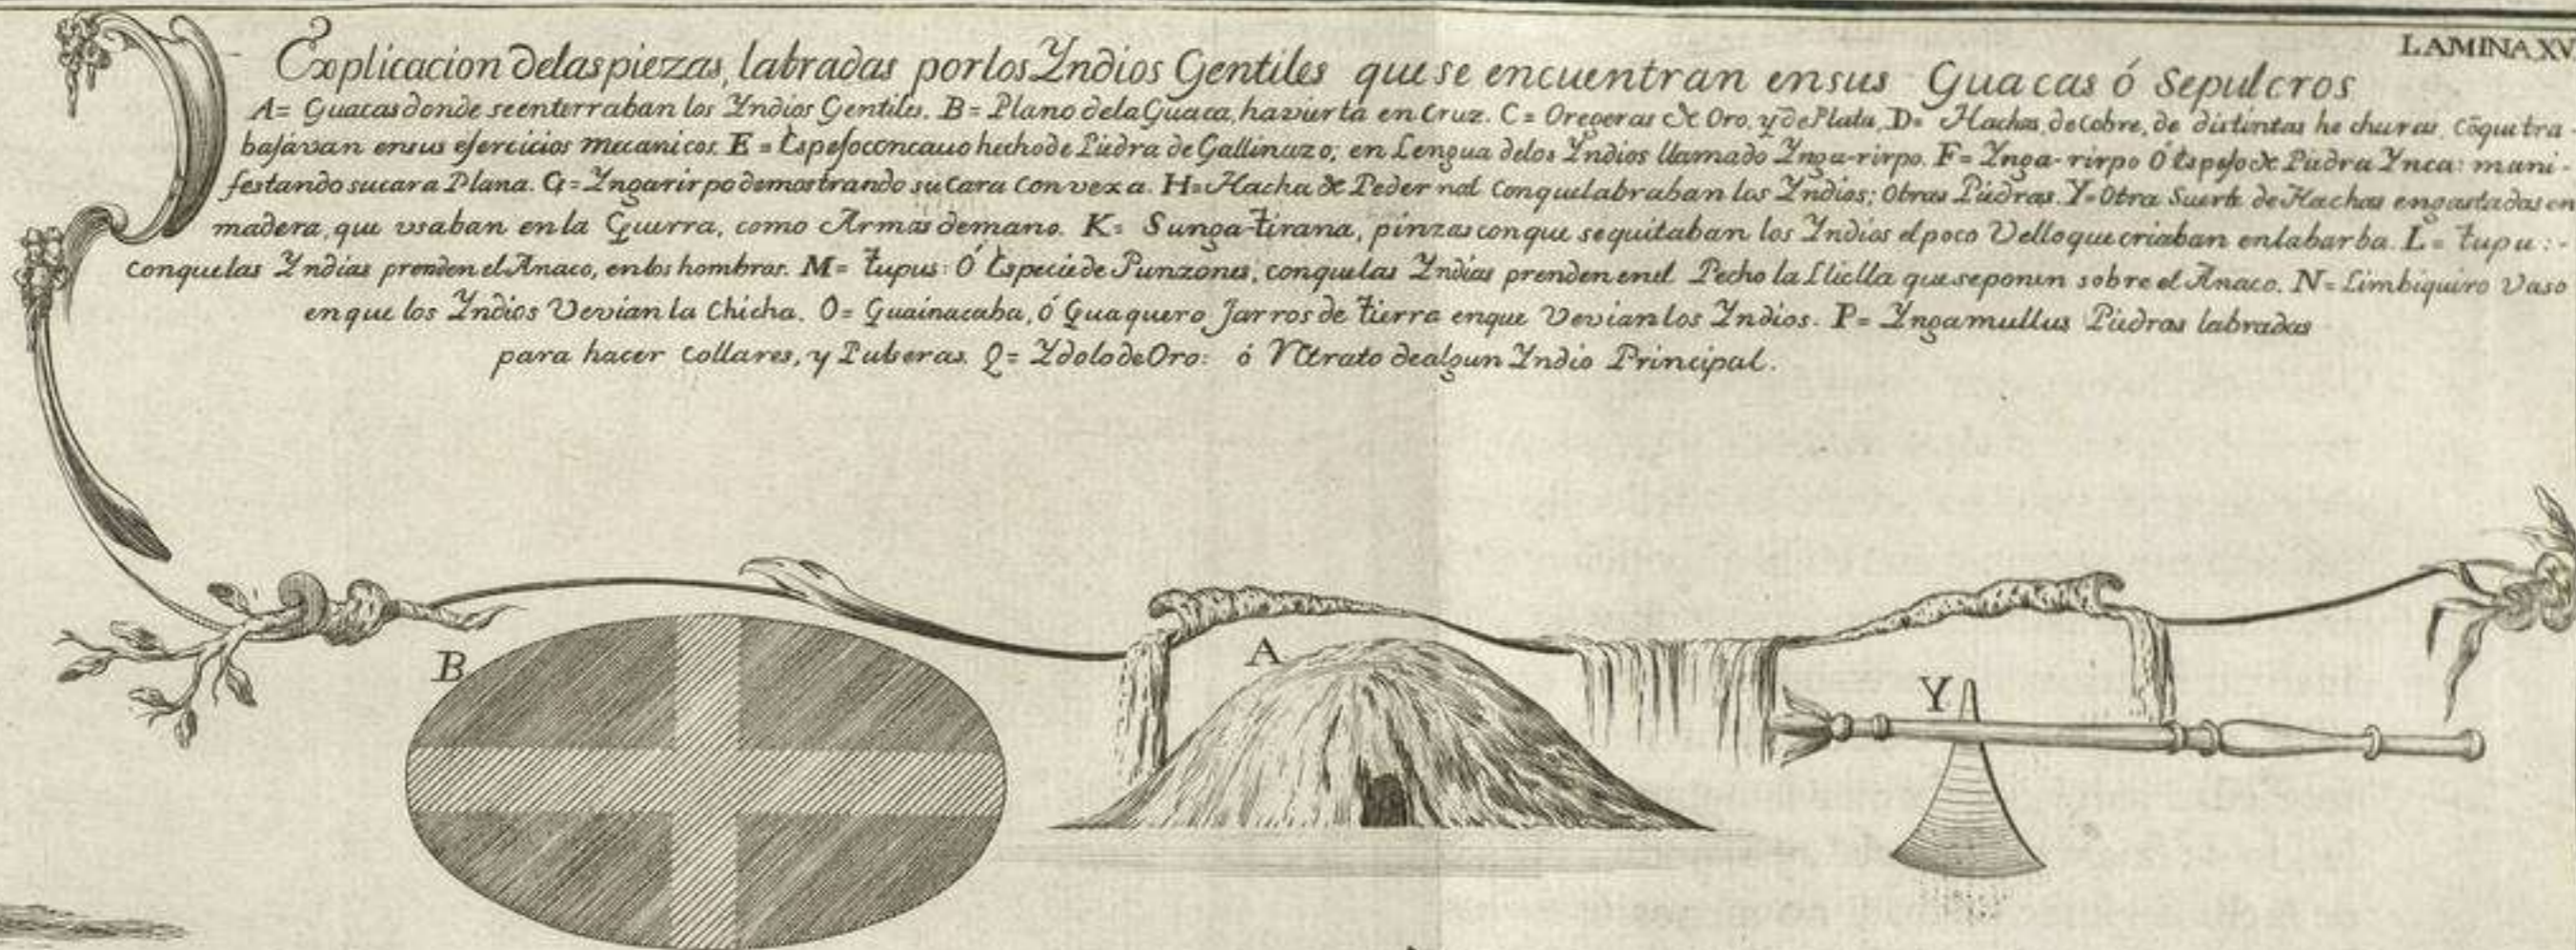 LAMINA XV
Explicacion delas piezas, labradas por los Yndios Gentiles que se encuentran ensus Guacas ó Sepulcros
A= Guacas donde seenterraban los Yndios Gentiles. B= Plano dela Guaca, havierta en Cruz. C= Oregeras de Oro, y de Plata, D= Hachas, de Cobre, de distintas hechuras, cõque tra-
bajàvan ensus ejercicios mecanicos. E= Espejo concauo hecho de Piedra de Gallinazo; en Lengua delos Yndios llamado Ynga-rirpo. F= Ynga-rirpo Ó Espejo de Piedra Ynca: mani-
festando su cara Plana. G= Yngarirpo demostrando su Cara Convexa. H= Hacha de Pedernal conque labraban los Yndios; Obras Piedras. Y= Otra Suerte de Hachas engastadas en
madera, que usaban en la Guerra, como Armas demano. K= Sunga-tirana, pinzas con que se quitaban los Yndios el poco Vello que criaban enlabarba. L= tupu:-
conquelas Yndias prenden el Anaco, en los hombros. M= tupus: Ó Especie de Punzones, conquelas Yndias prenden enel Pecho la Lliclla que seponen sobre el Anaco. N= Limbiquiro Vaso
en que los Yndios Vevian la Chicha. O= Guainacaba, ó Guaquero Jarros de tierra enque Vevian los Yndios. P= Yngamullus Piedras labradas
para hacer Collares, y Pulseras. Q= Ydolo de Oro: ó Retrato dealgun Yndio Principal.
B
A
Y